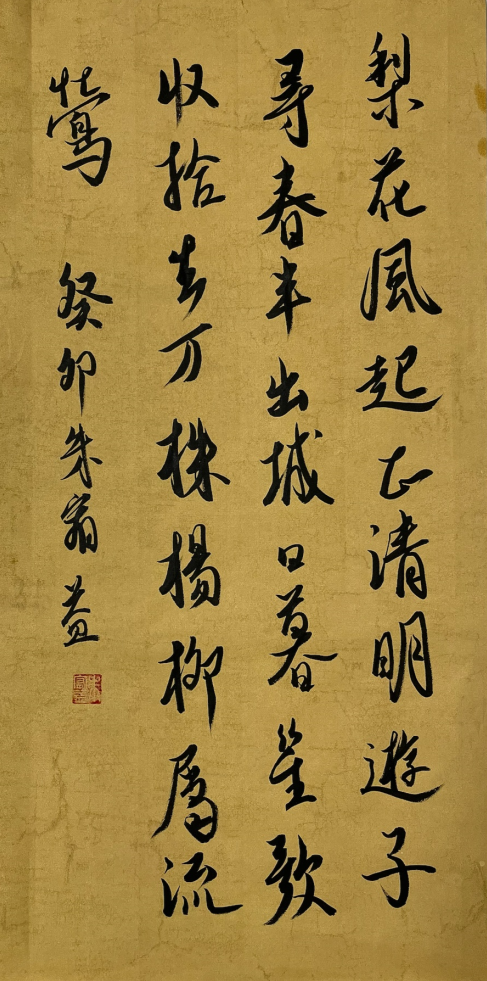 梨花風起正清明遊子
尋春半出城日暮笙歌
收拾去万株楊柳屬流
鶯 癸卯朱益